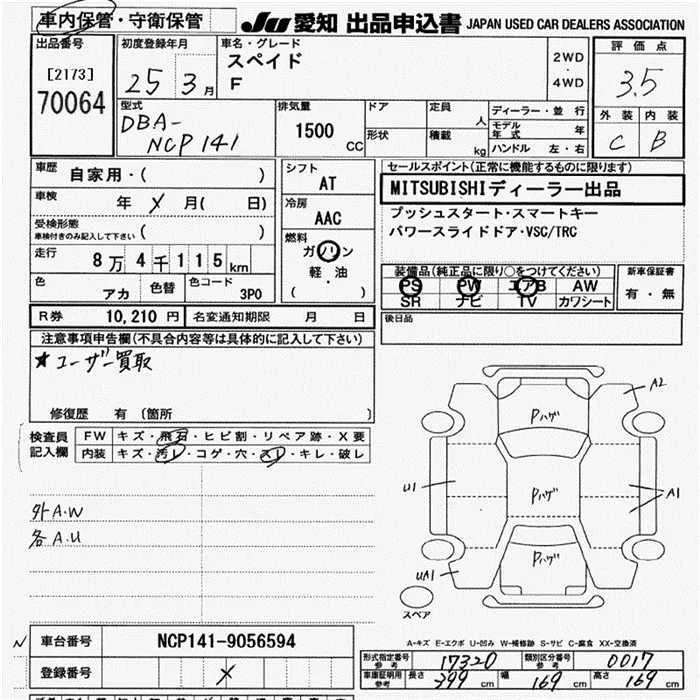 車内保管・守衛保管
JU 愛知 出品申込書 JAPAN USED CAR DEALERS ASSOCIATION
出品番号
[2173]
70064
初度登録年月
25 3月
車名・グレード
スペイド
F
2WD
・
4WD
評価点
3.5
外装 内装
C B
型式
DBA-
NCP141
排気量
1500 CC
ドア
形状
定員 人
積載 kg
ディーラー・並行
モデル年式 年
ハンドル 左・右
車歴 自家用・( )
車検 年 メ 月( 日)
受検形態
車検付きのみ記入して下さい ( )
走行 8万4千115km
色 アカ 色替 色コード 3P0
シフト
AT
冷房
AAC
燃料
ガソリン
軽・油
( )
セールスポイント(正常に機能するものに限ります)
MITSUBISHIディーラー出品
プッシュスタート・スマートキー
パワースライドドア・VSC/TRC
装備品(純正品に限り○をつけてください)
PS PW エアB AW
SR ナビ TV カワシート
新車保証書
有・無
R券 10,210円 名変通知期限 月 日
後日品
注意事項申告欄(不具合内容等は具体的に記入して下さい)
★ユーザー買取
修復歴 有 (箇所 )
検査員
記入欄
FW キズ・飛石・ヒビ割・リペア跡・X要
内装 キズ・汚レ・コゲ・穴・スレ・キレ・破レ
外A.W
各A.U
A2
Pハゲ
U1
Pハゲ
A1
Pハゲ
UA1
スペア
A-キズ E-エクボ U-凹み W-補修跡 S-サビ C-腐食 XX-交換済
N 車台番号 NCP141-9056594
登録番号 メ
形式指定番号 参考 17320 類別区分番号 参考 0017
車庫証明用 参考 長さ 399cm 幅 169cm 高さ 169cm